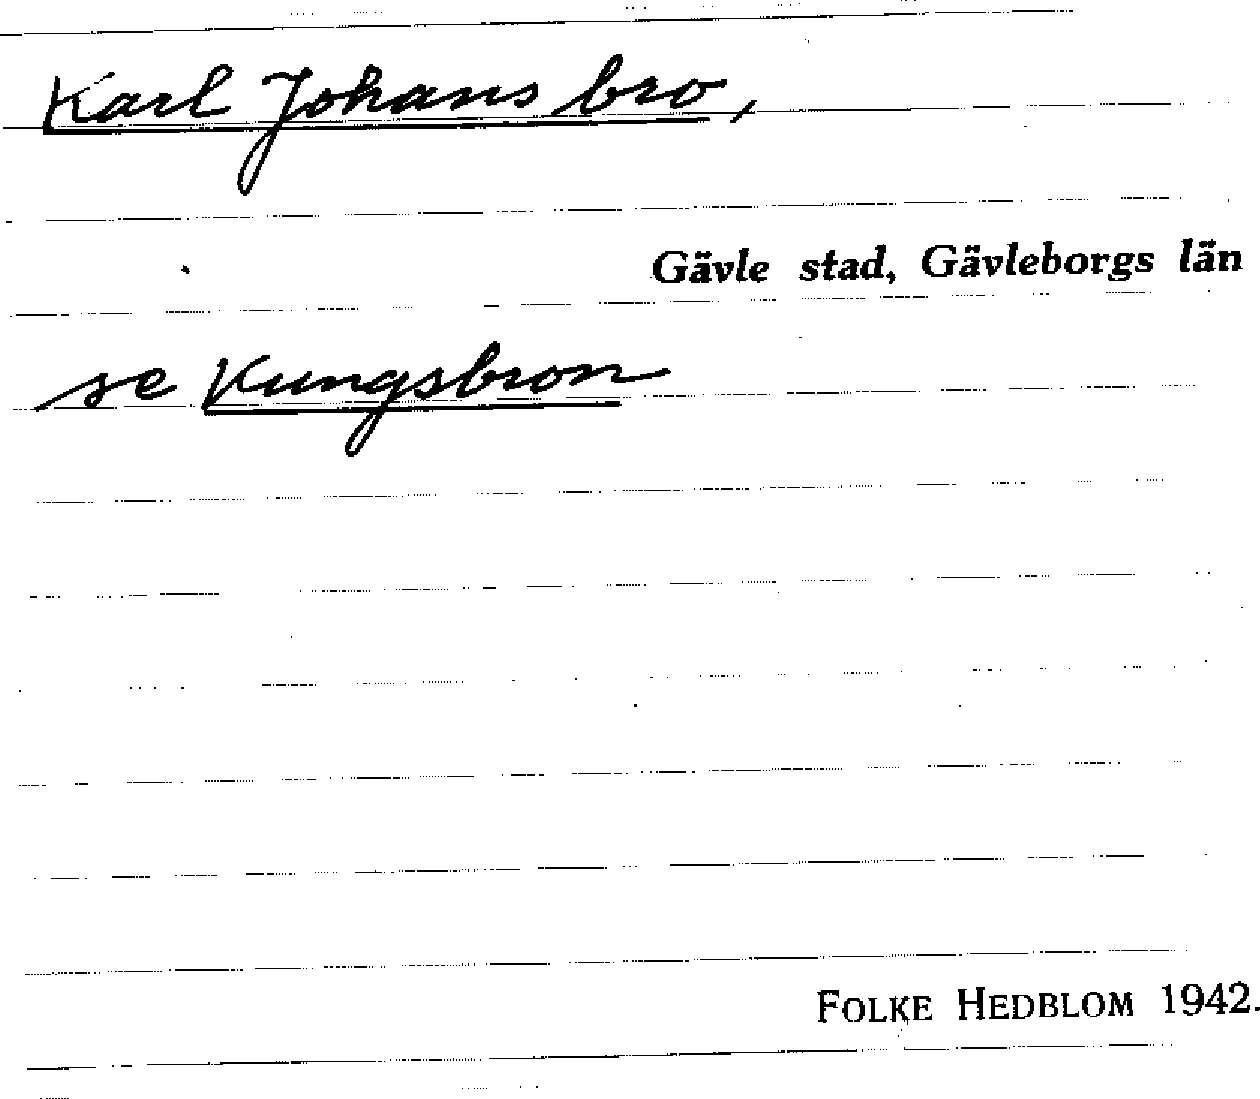 Karl Johans bro,
Gävle stad, Gävleborgs län
se Kungsbron
FOLKE HEDBLOM 1942.